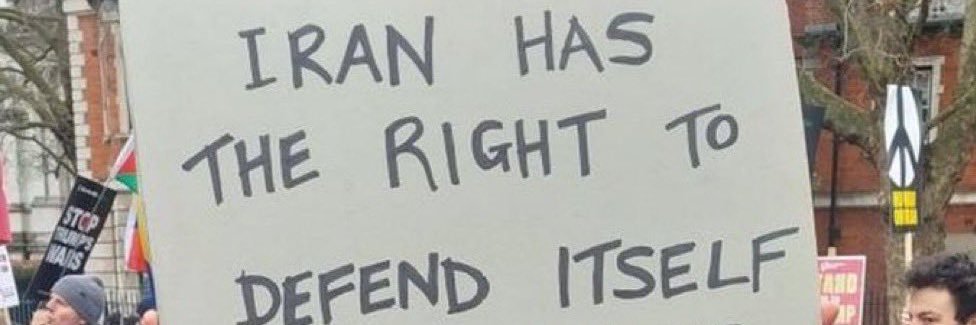 IRAN HAS
THE RIGHT TO
DEFEND ITSELF
STOP
TRUMP'S
WARS